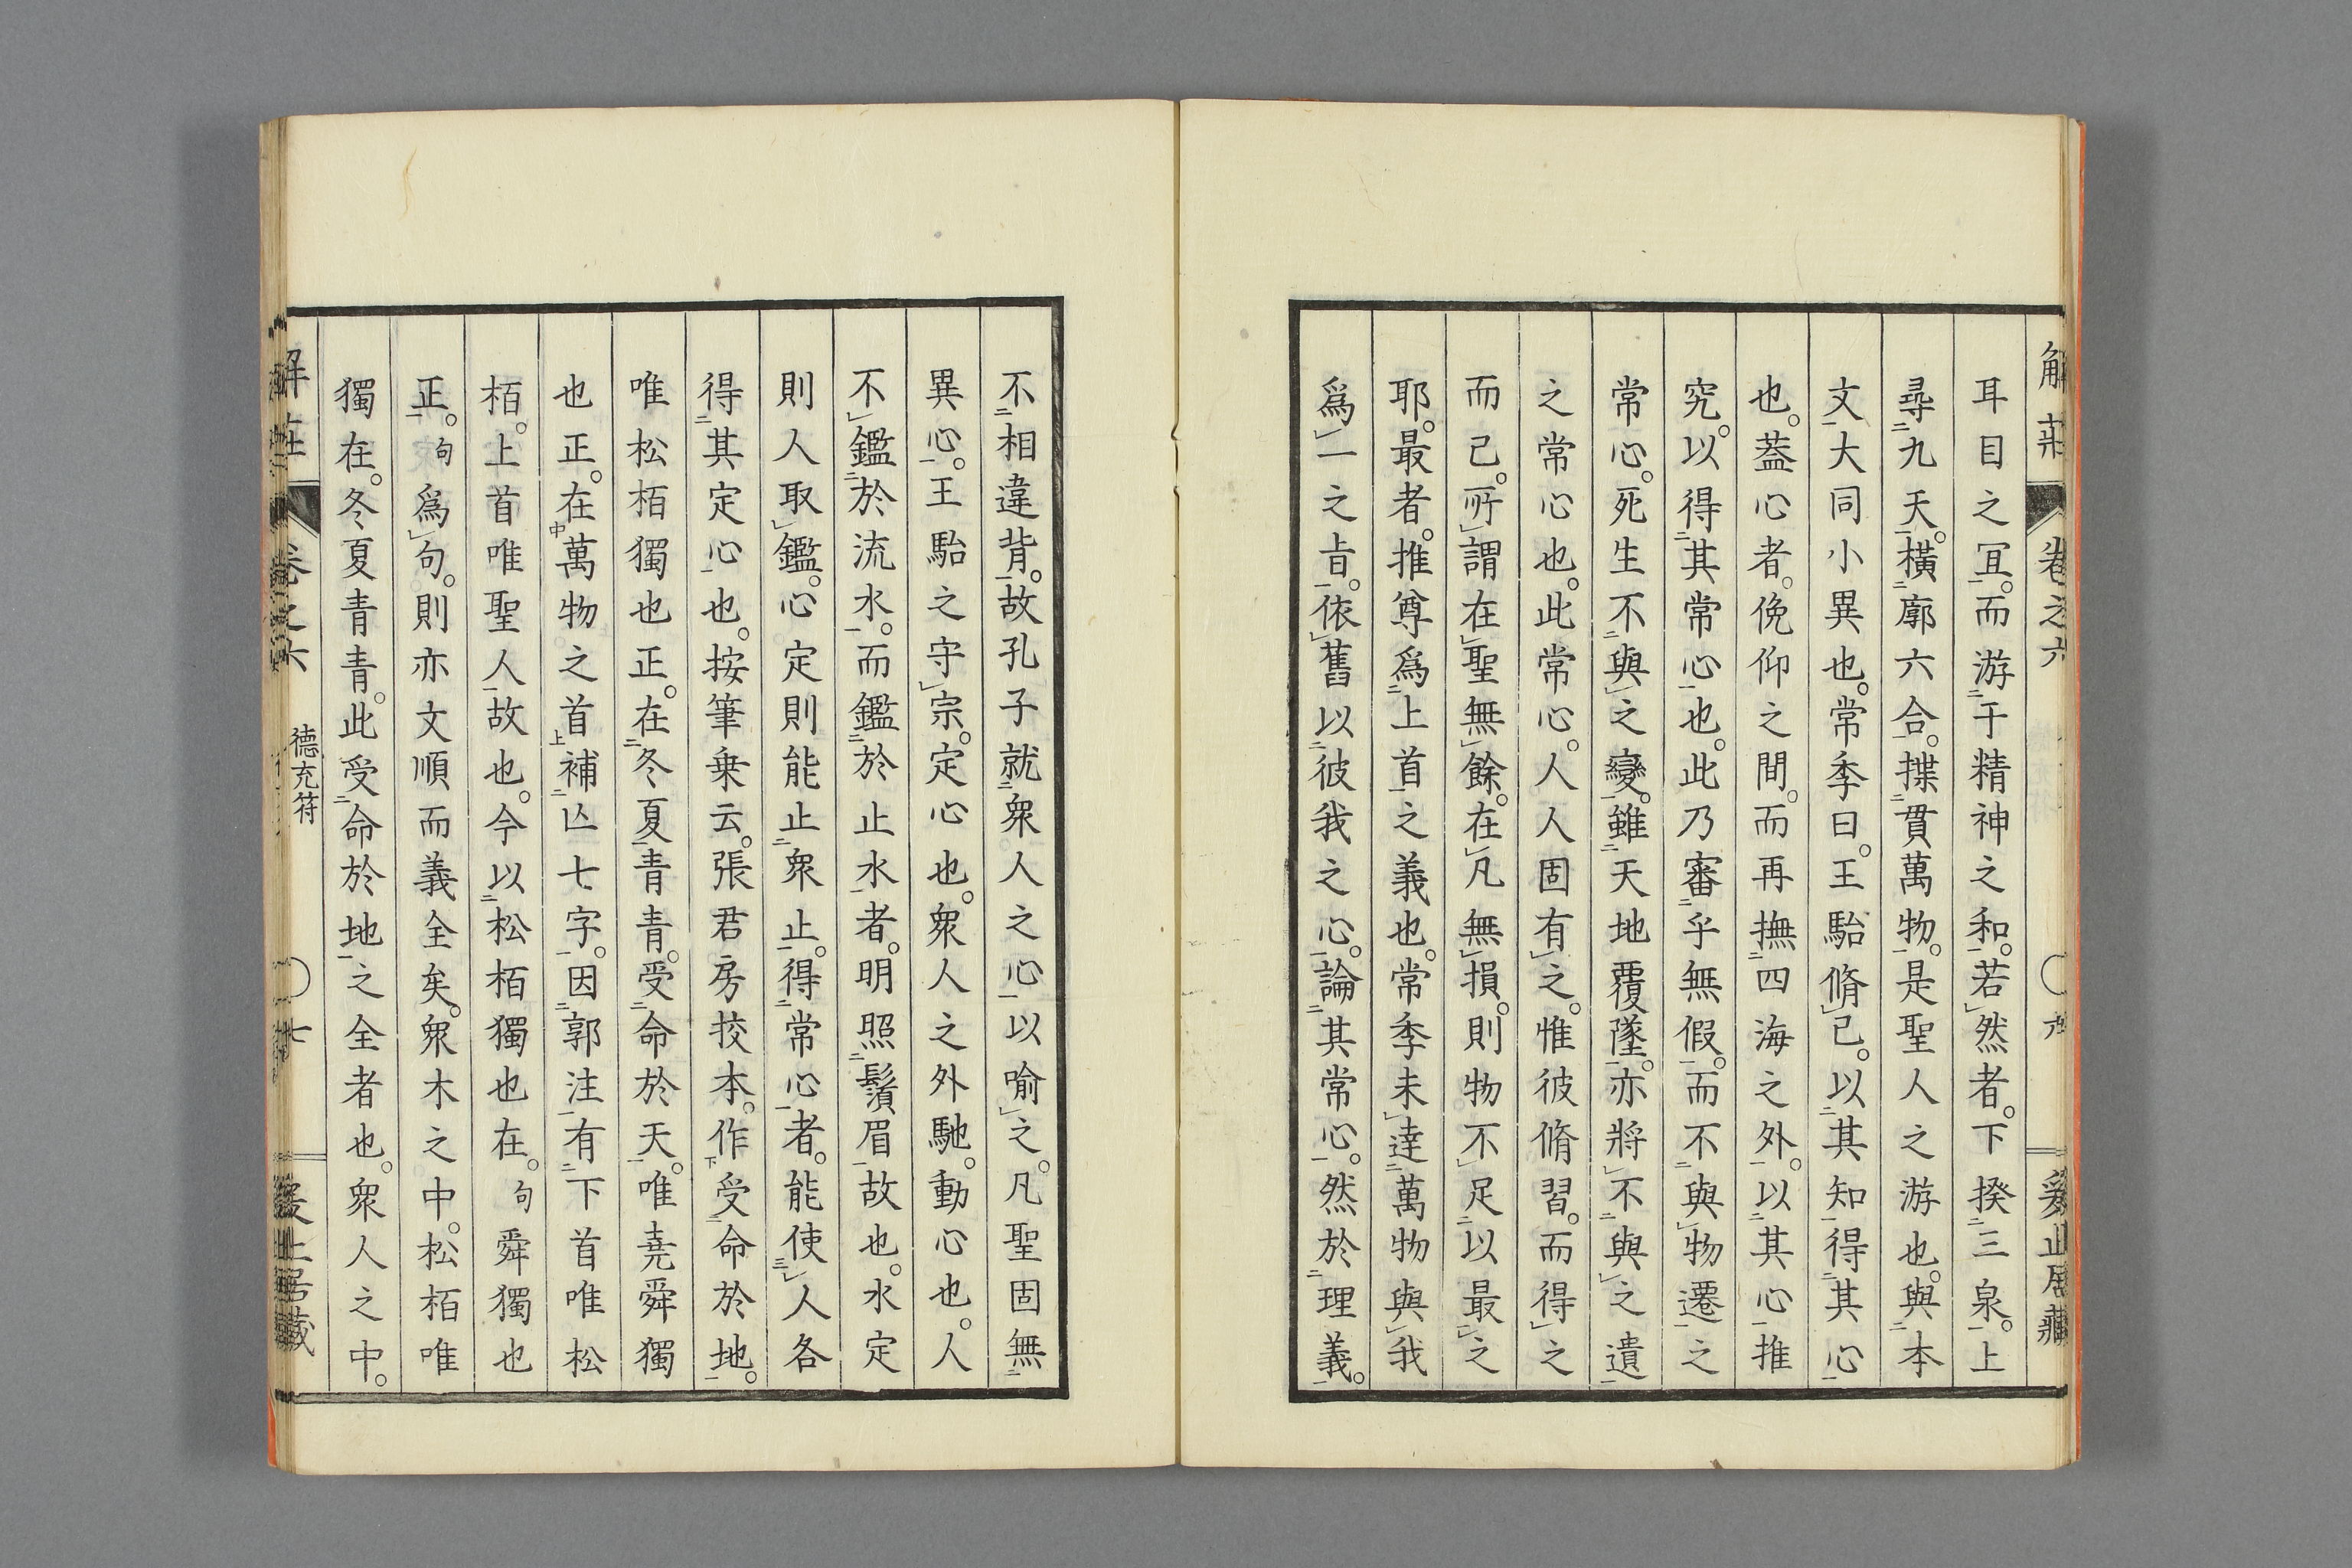 解莊 卷之六 爰止居藏
耳目之冝。而游于精神之和。若然者。下揆三泉。上
尋九天。橫廓六合。揲貫萬物。是聖人之游也。與本
文大同小異也。常季曰。王駘脩己。以其知得其心
也。葢心者。俛仰之間。而再撫四海之外。以其心推
究。以得其常心也。此乃審乎無假。而不與物遷之
常心。死生不與之變。雖天地覆墜。亦將不與之遺
之常心也。此常心。人人固有之。惟彼脩習。而得之
而已。所謂在聖無餘。在凡無損。則物不足以最之
耶。最者。推尊爲上首之義也。常季未達萬物與我
爲一之旨。依舊以彼我之心。論其常心。然於理義。
不相違背。故孔子就衆人之心以喻之。凡聖固無
異心。王駘之守宗。定心也。衆人之外馳。動心也。人
不鑑於流水。而鑑於止水者。明照鬚眉故也。水定
則人取鑑。心定則能止衆止。得常心者。能使人各
得其定心也。按筆乗云。張君房挍本。作受命於地。
唯松栢獨也正。在冬夏青青。受命於天。唯堯舜獨
也正。在萬物之首補亾七字。因郭注有下首唯松
栢。上首唯聖人故也。今以松栢獨也在。句舜獨也
正。句爲句。則亦文順而義全矣。衆木之中。松栢唯
獨在。冬夏青青。此受命於地之全者也。衆人之中。
解莊 卷之六 德充符 七 爰止居藏